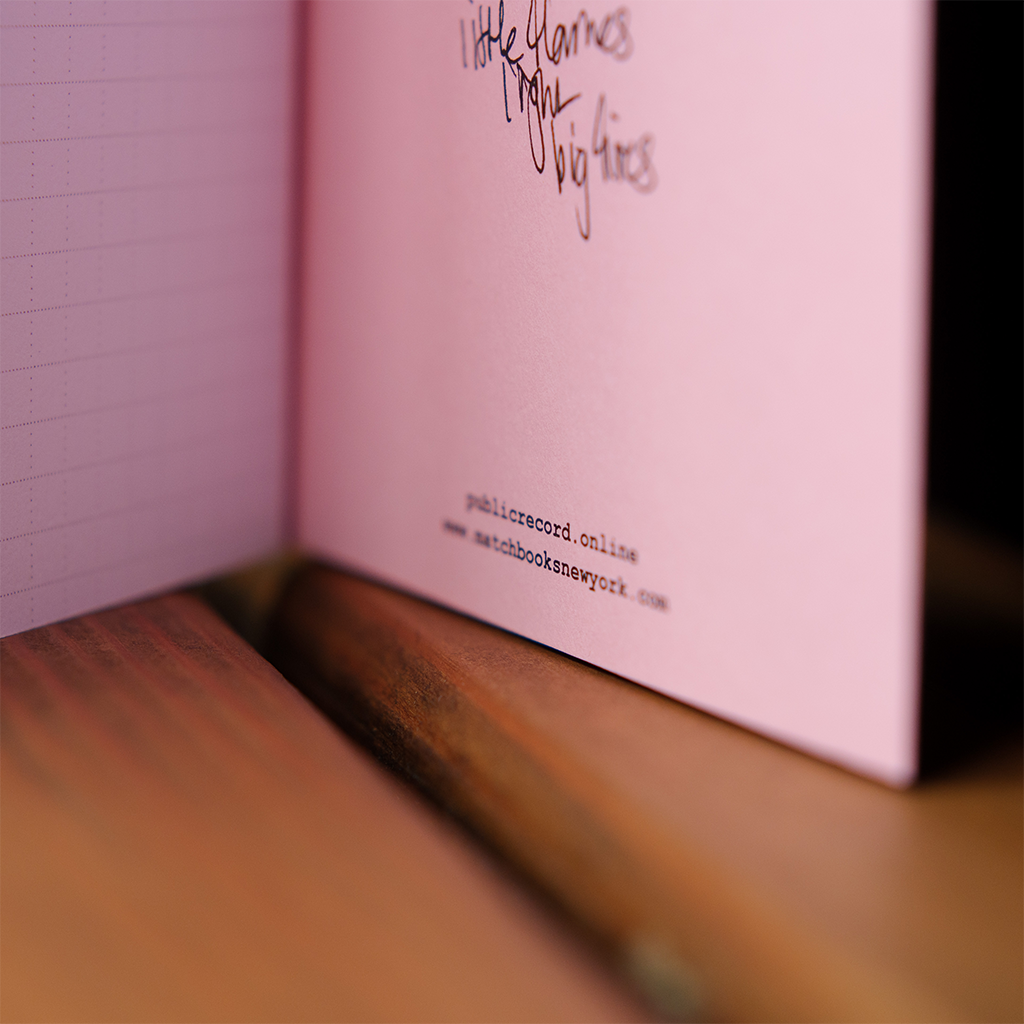 little flames
light
big fires
publicrecord.online
www.matchbooksnewyork.com